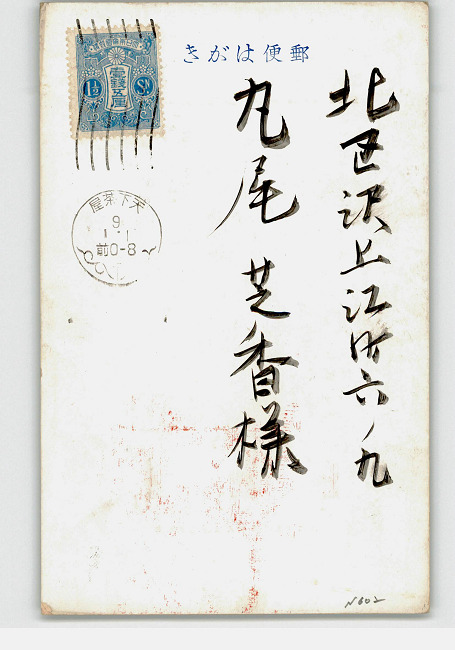 郵便はがき
北区沢上江町六ノ九
丸尾芝香様
1½ Sn.
壹錢五厘
天下茶屋
9
1.1
前0-8
N602